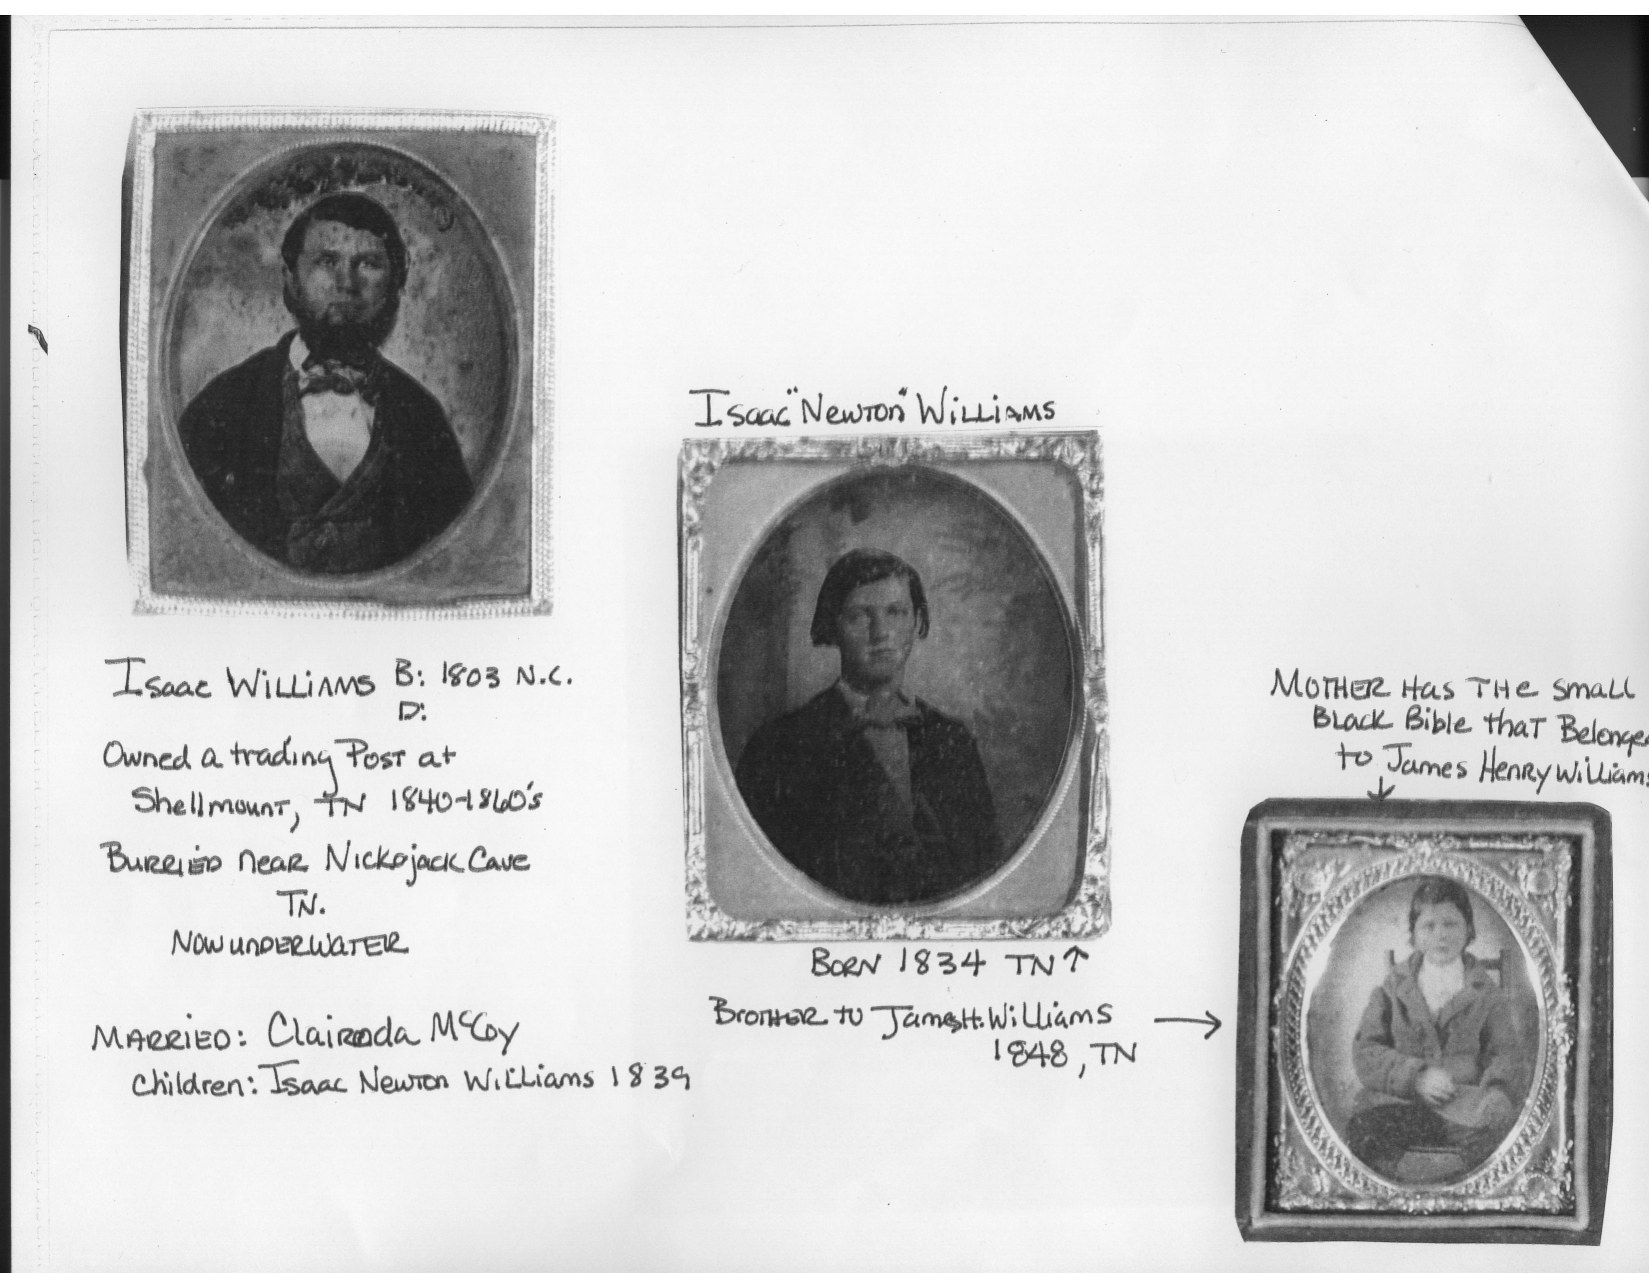 Isaac Williams B: 1803 N.C.
D:
Owned a trading Post at
Shellmount, TN 1840-1860's
Burried near Nickojack Cave
TN.
Now underwater
Married: Clairoda McCoy
Children: Isaac Newton Williams 1839
Isaac "Newton" Williams
Born 1834 TN ↑
Brother to James H. Williams →
1848, TN
Mother Has The small
Black Bible that Belonged
to James Henry Williams
↓